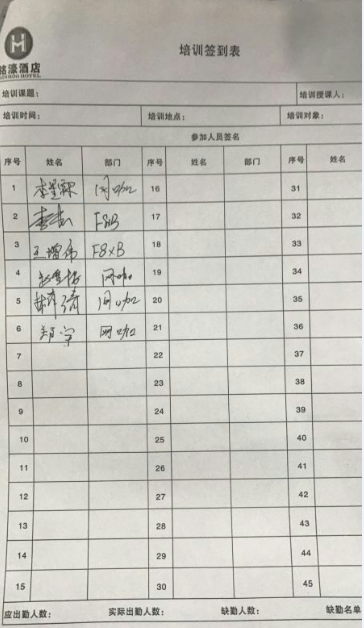 H
铭濠酒店
MINGHO HOTEL
培训签到表
培训课题: 培训授课人:
培训时间: 培训地点: 培训对象:
参加人员签名
序号 姓名 部门 序号 姓名 部门 序号 姓名
1 网咖 16 31
2 F&B 17 32
3 王增伟 F&B 18 33
4 网咖 19 34
5 网咖 20 35
6 网咖 21 36
7 22 37
8 23 38
9 24 39
10 25 40
11 26 41
12 27 42
13 28 43
14 29 44
15 30 45
应出勤人数: 实际出勤人数: 缺勤人数: 缺勤名单